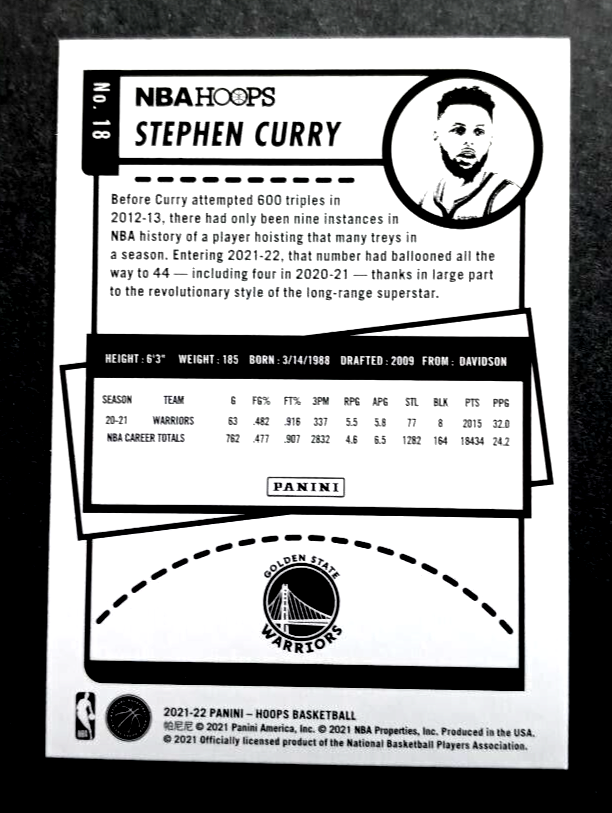 No. 18
NBA HOOPS
STEPHEN CURRY
Before Curry attempted 600 triples in
2012-13, there had only been nine instances in
NBA history of a player hoisting that many treys in
a season. Entering 2021-22, that number had ballooned all the
way to 44 — including four in 2020-21 — thanks in large part
to the revolutionary style of the long-range superstar.
HEIGHT: 6'3" WEIGHT: 185 BORN: 3/14/1988 DRAFTED: 2009 FROM: DAVIDSON
SEASON TEAM G FG% FT% 3PM RPG APG STL BLK PTS PPG
20-21 WARRIORS 63 .482 .916 337 5.5 5.8 77 8 2015 32.0
NBA CAREER TOTALS 762 .477 .907 2832 4.6 6.5 1282 164 18434 24.2
PANINI
GOLDEN STATE
WARRIORS
NBA
2021-22 PANINI – HOOPS BASKETBALL
帕尼尼 © 2021 Panini America, Inc. © 2021 NBA Properties, Inc. Produced in the USA.
© 2021 Officially licensed product of the National Basketball Players Association.